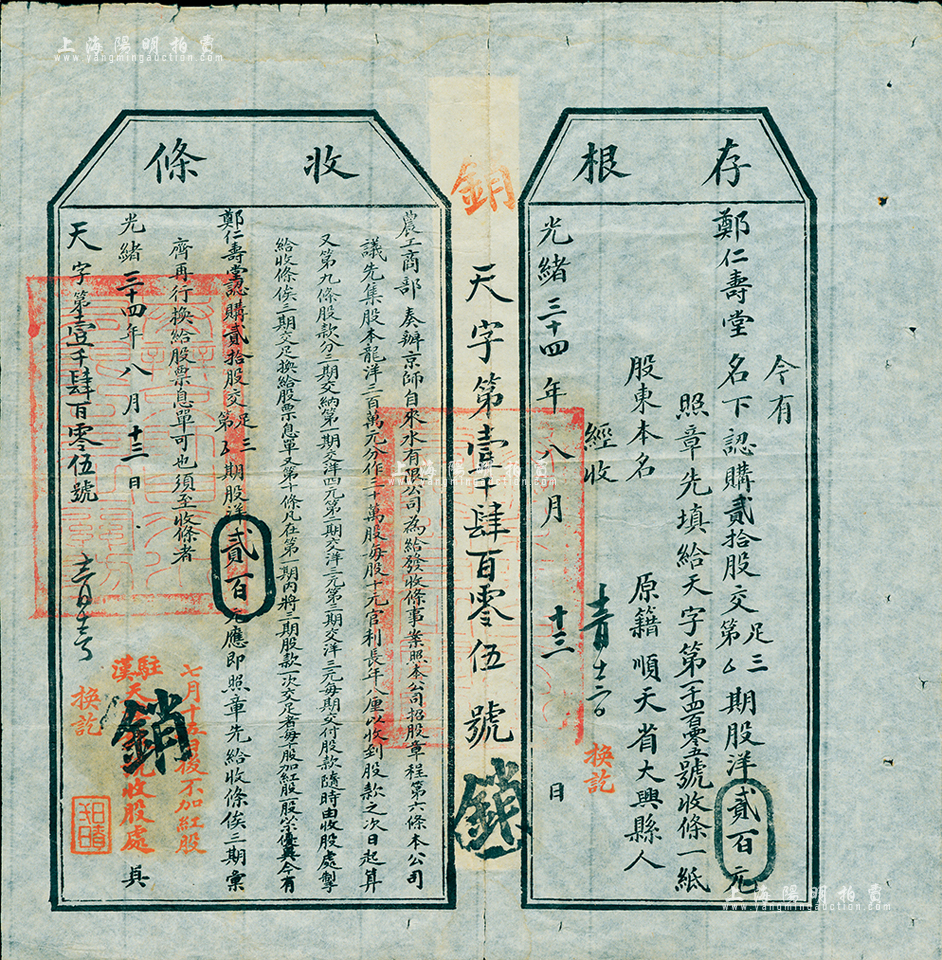 上海陽明拍賣
www.yangmingauction.com
存根
今有
鄭仁壽堂 名下認購貳拾股交第 足三 期股洋貳百元
照章先填給天字第一千四百零五號收條一紙
股東本名 原籍順天省大興縣人
經收
換訖
光緒三十四年八月十三日
銷
天字第壹千肆百零伍號
銷
收條
農工商部奏辦京師自來水有限公司為給發收條事案照本公司招股章程第六條本公司
議先集股本龍洋三百萬元分作三十萬股每股十元官利長年八厘以收到股款之次日起算
又第九條股款分三期交納第一期交洋四元第二期交洋三元第三期交洋三元每期交付股款隨時由收股處掣
給收條俟三期交足換給股票息單又第十條凡在第一期內將三期股款一次交足者每十股加紅股一股以示優異今有
鄭仁壽堂認購貳拾股交第 足三 期股洋貳百元應即照章先給收條俟三期彙
齊再行換給股票息單可也須至收條者
光緒三十四年八月十三日
天字第壹千肆百零伍號
七月十五日後不加紅股
駐漢天 收股處 具
換訖
銷
上海陽明拍賣
www.yangmingauction.com